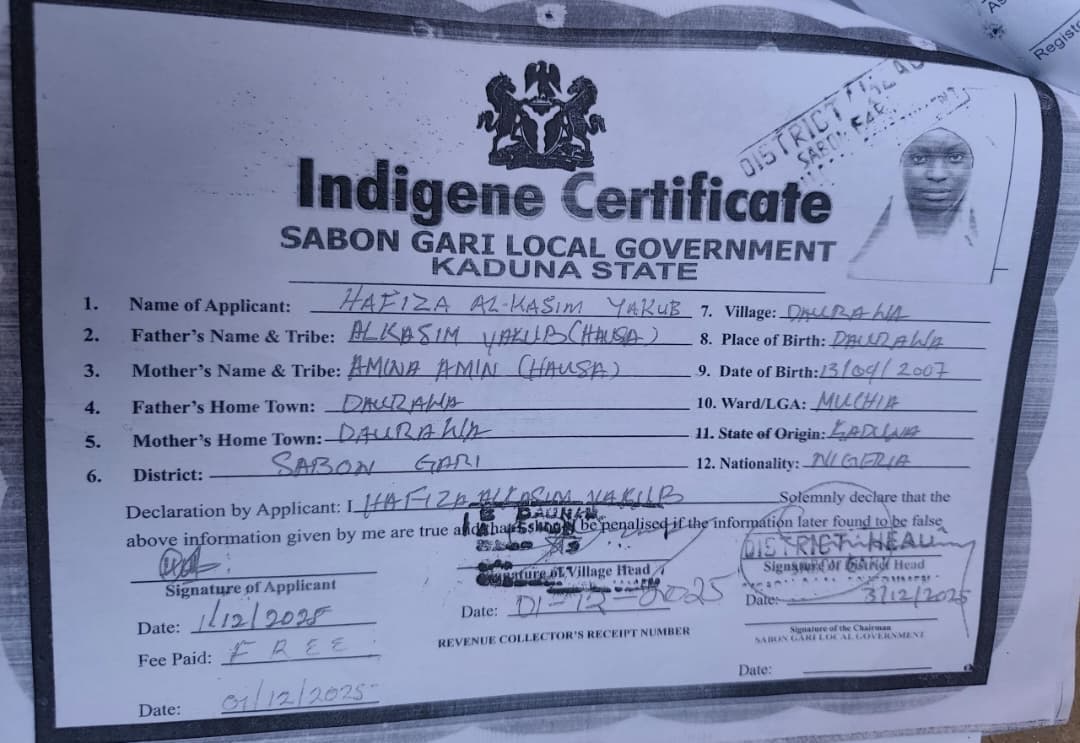 Registe
DISTRICT HEAD
SABON GARI
Indigene Certificate
SABON GARI LOCAL GOVERNMENT
KADUNA STATE
1. Name of Applicant: HAFIZA AL-KASIM YAKUB
2. Father's Name & Tribe: ALKASIM YAKUB (HAUSA)
3. Mother's Name & Tribe: AMINA AMIN (HAUSA)
4. Father's Home Town: DAURAWA
5. Mother's Home Town: DAURAWA
6. District: SABON GARI
7. Village: DAURAWA
8. Place of Birth: DAURAWA
9. Date of Birth: 13/04/2007
10. Ward/LGA: MUCHIA
11. State of Origin: KADUNA
12. Nationality: NIGERIA
Declaration by Applicant: I HAFIZA ALKASIM YAKUB Solemnly declare that the
above information given by me are true and be penalised if the information later found to be false
DISTRICT HEAD
Signature of Applicant
Signature of Village Head
Signature of District Head
Date: 1/12/2025
Date: 01-12-2025
Date: 3/12/2025
Fee Paid: FREE
REVENUE COLLECTOR'S RECEIPT NUMBER
Signature of the Chairman
SABON GARI LOCAL GOVERNMENT
Date: 01/12/2025
Date: